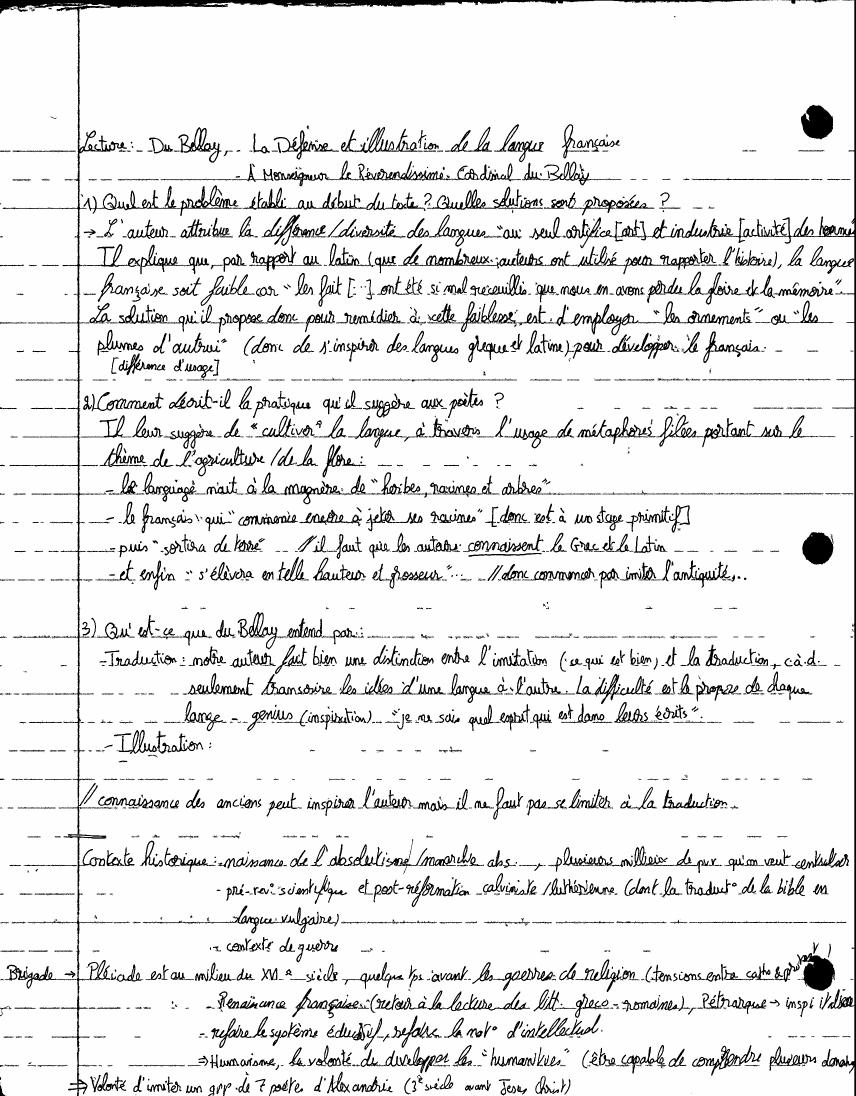 Lecture : Du Bellay, La Défense et illustration de la langue française
- À Monseigneur le Révérendissime Cardinal du Bellay
1) Quel est le problème établi au début du texte ? Quelles solutions sont proposées ?
→ L'auteur attribue la différence/diversité des langues "au seul artifice [art] et industrie [activité] des hommes
Il explique que, par rapport au latin (que de nombreux auteurs ont utilisé pour rapporter l'histoire), la langue
française soit faible car "les fait [...] ont été si mal recueillis que nous en avons perdu la gloire et la mémoire".
La solution qu'il propose donc pour remédier à cette faiblesse, est d'employer "les ornements" ou "les
plumes d'autrui" (donc de s'inspirer des langues grecque et latine) pour développer le français.
[différence d'usage]
2) Comment décrit-il la pratique qu'il suggère aux poètes ?
Il leur suggère de "cultiver" la langue, à travers l'usage de métaphores filées portant sur le
thème de l'agriculture / de la flore :
- le language nait à la magnère de "herbes, racines et arbres"
- le français qui "commence encore à jeter ses racines" [donc est à un stage primitif]
- puis "sortira de terre" // il faut que les autaire connaissent le Grec et le Latin
- et enfin "s'élèvera en telle hauteur et grosseur"... // donc commencer par imiter l'antiquité...
3) Qu'est-ce que du Bellay entend par :
- Traduction : notre auteur fact bien une distinction entre l'imitation (ce qui est bien) et la traduction, c.à.d.
seulement transcrire les idées d'une langue à l'autre. La difficulté est le propre de chaque
lange - genius (inspiration) "je ne sais quel esprit qui est dans leurs écrits".
- Illustration :
// connaissance des anciens peut inspirer l'auteur mais il ne faut pas se limiter à la traduction.
Contexte historique : naissance de l'absolutisme /monarchie abs. , plusieurs millieux de pvr qu'on veut centraliser
- pré-rev. scientifique et post-réformation calviniste /luthérienne (dont la traduct° de la bible en
langue vulgaire)
- contexte de guerre
Brigade → Pléiade est au milieu du XVI e siècle, quelque tps avant les guerres de religion (tensions entre catho & protest)
- Renaissance française : (retour à la lecture des litt. greco-romaines), Pétrarque → inspi italienne
- refaire le système éducatif, refaire la not° d'intellectuel.
⇒ Humanisme, la volonté de developper les "humanitées" (être capable de comprendre plusieurs domaines
⇒ Volonté d'imiter un grp de 7 poètes d'Alexandrie (3e siècle avant Jesus Christ)